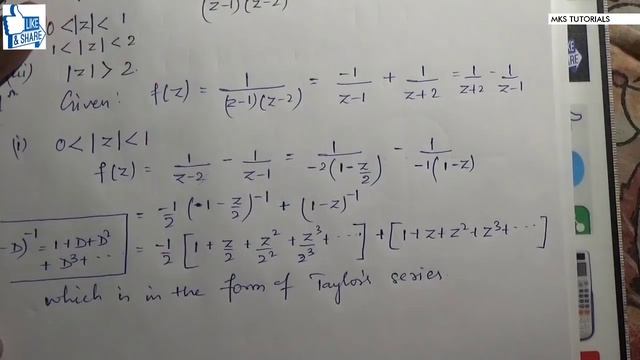 LIKE & SHARE
MKS TUTORIALS
(z-1)(z-2)
0 < |z| < 1
1 < |z| < 2
|z| > 2.
Given: f(z) = 1/((z-1)(z-2)) = -1/(z-1) + 1/(z+2) = 1/(z+2) - 1/(z-1)
(i) 0 < |z| < 1
f(z) = 1/(z-2) - 1/(z-1) = 1/(-2(1-z/2)) - 1/(-1(1-z))
= -1/2 (1 - z/2)^-1 + (1-z)^-1
- D)^-1 = 1+D+D^2
+ D^3 + ...
= -1/2 [1 + z/2 + z^2/2^2 + z^3/2^3 + ...] + [1+z+z^2+z^3+...]
which is in the form of Taylor's series